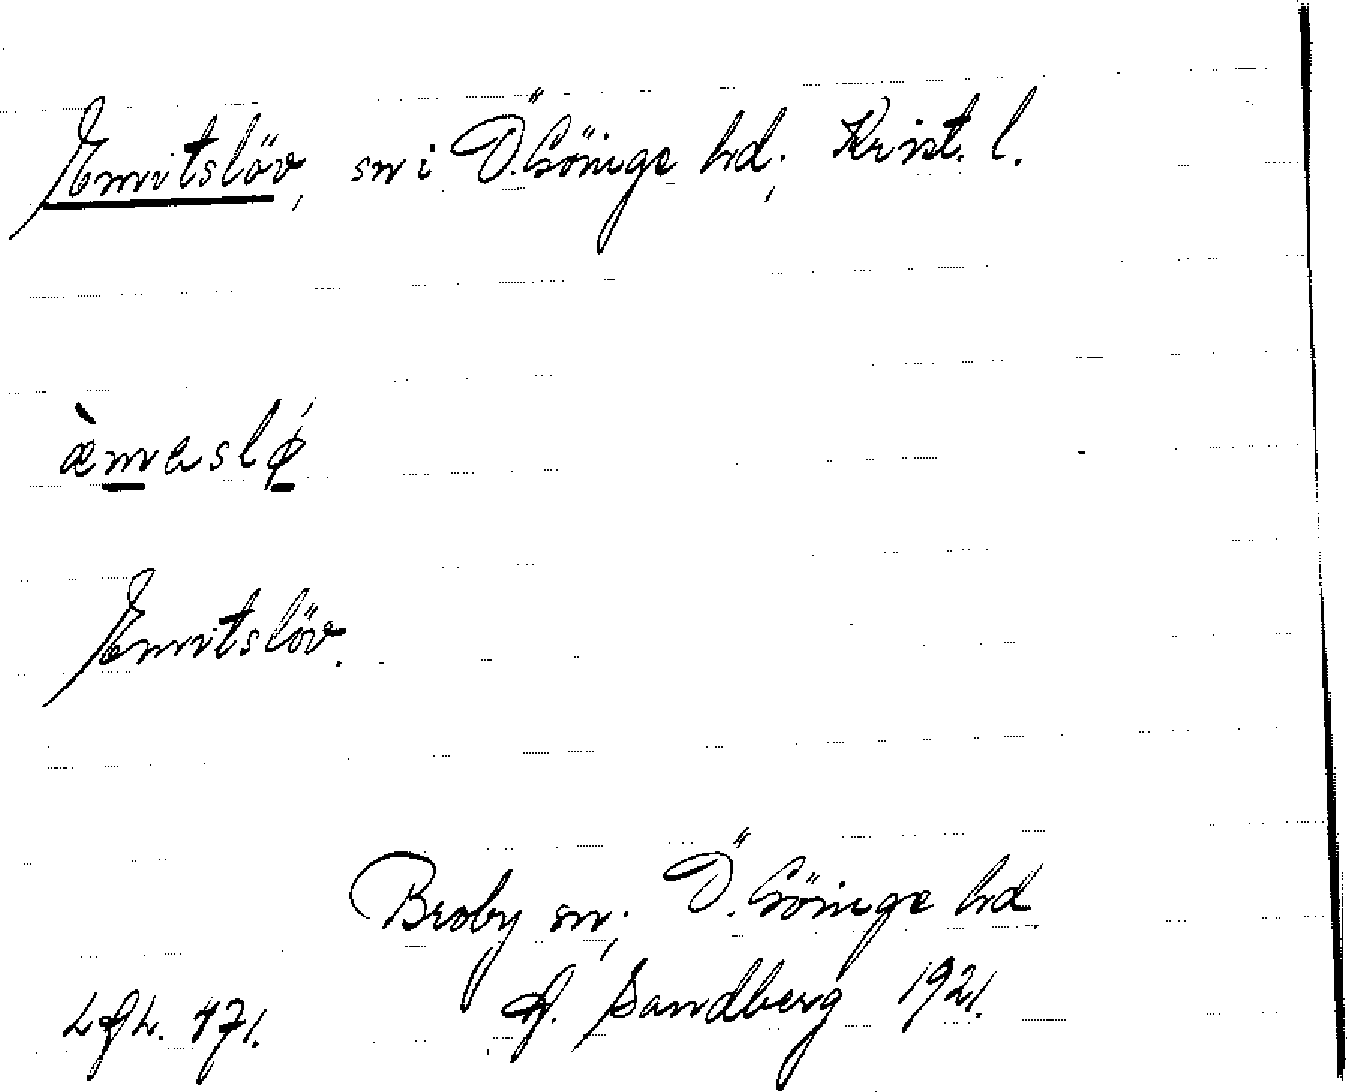 Emitslöv, sn i Ö. Göinge hd; Krist. l.
æ̀masló̢
Emitslöv.
Broby sn; Ö. Göinge hd
Sandberg 1921.